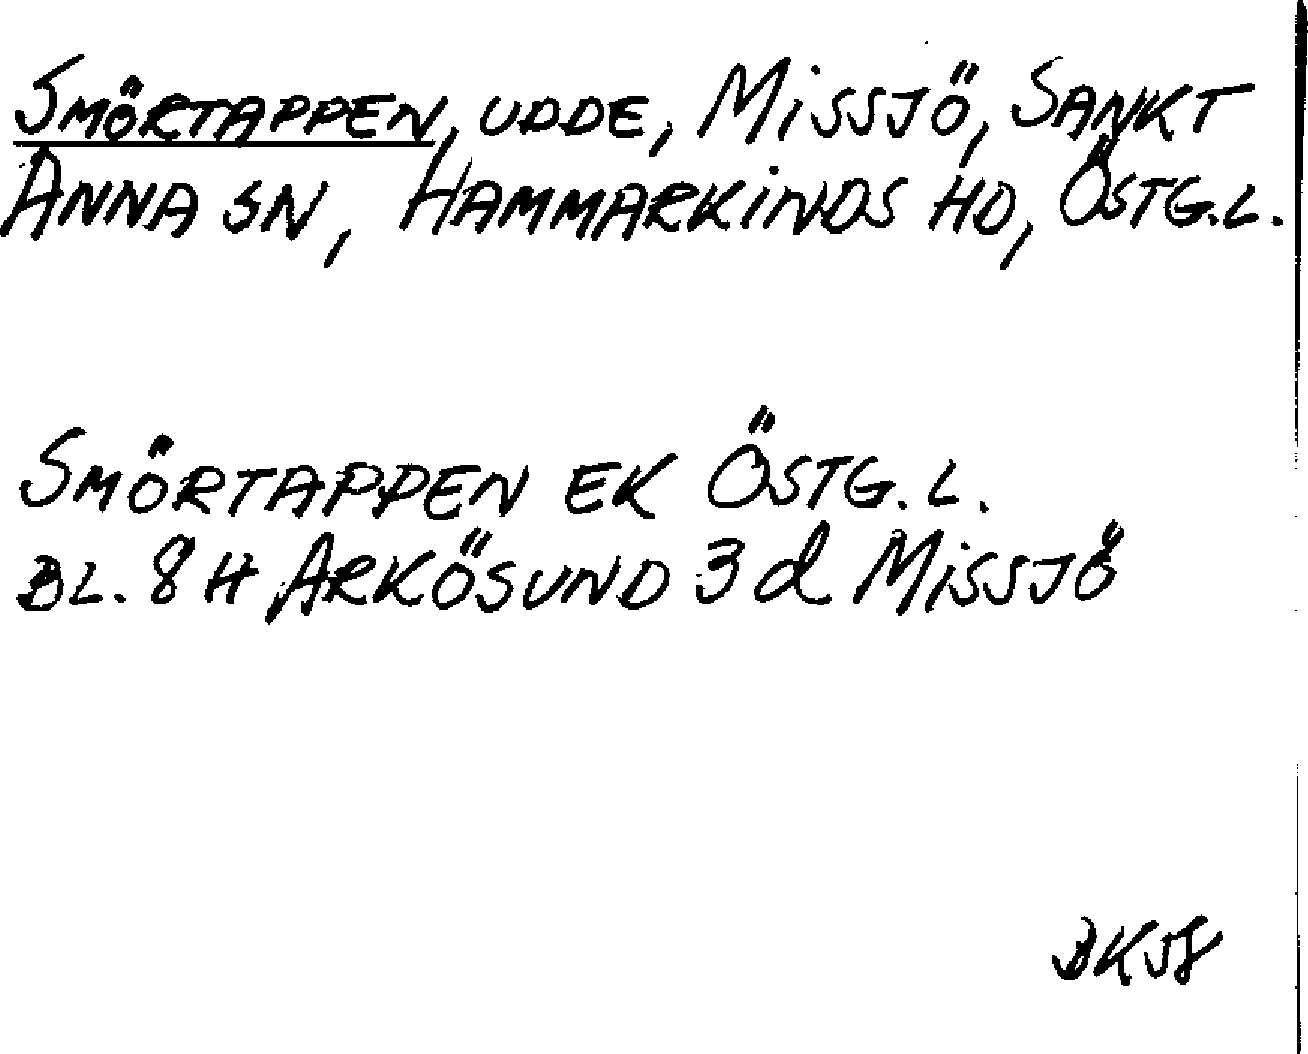 Smörtappen, udde, Missjö, Sankt
Anna sn, Hammarkinds hd, Östg.l.
Smörtappen ek Östg.l.
Bl. 8H Arkösund 3d Missjö